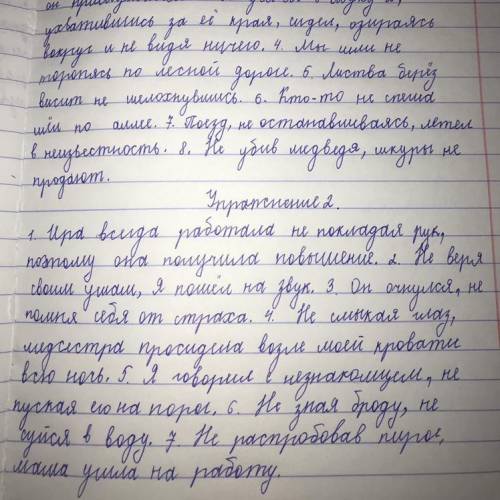 ухватившись за её края, сидел, озираясь
вокруг и не видя ничего. 4. Мы шли не
торопясь по лесной дороге. 5. Листва берёз
висит не шелохнувшись. 6. Кто-то не спеша
шёл по аллее. 7. Поезд, не останавливаясь, летел
в неизвестность. 8. Не убив медведя, шкуры не
продают.
Упражнение 2.
1. Ира всегда работала не покладая рук,
поэтому она получила повышение. 2. Не веря
своим ушам, я пошёл на звук. 3. Он очнулся, не
помня себя от страха. 4. Не смыкая глаз,
медсестра просидела возле моей кровати
всю ночь. 5. Я говорил с незнакомцем, не
пуская его на порог. 6. Не зная броду, не
суйся в воду. 7. Не распробовав пирог,
мама ушла на работу.